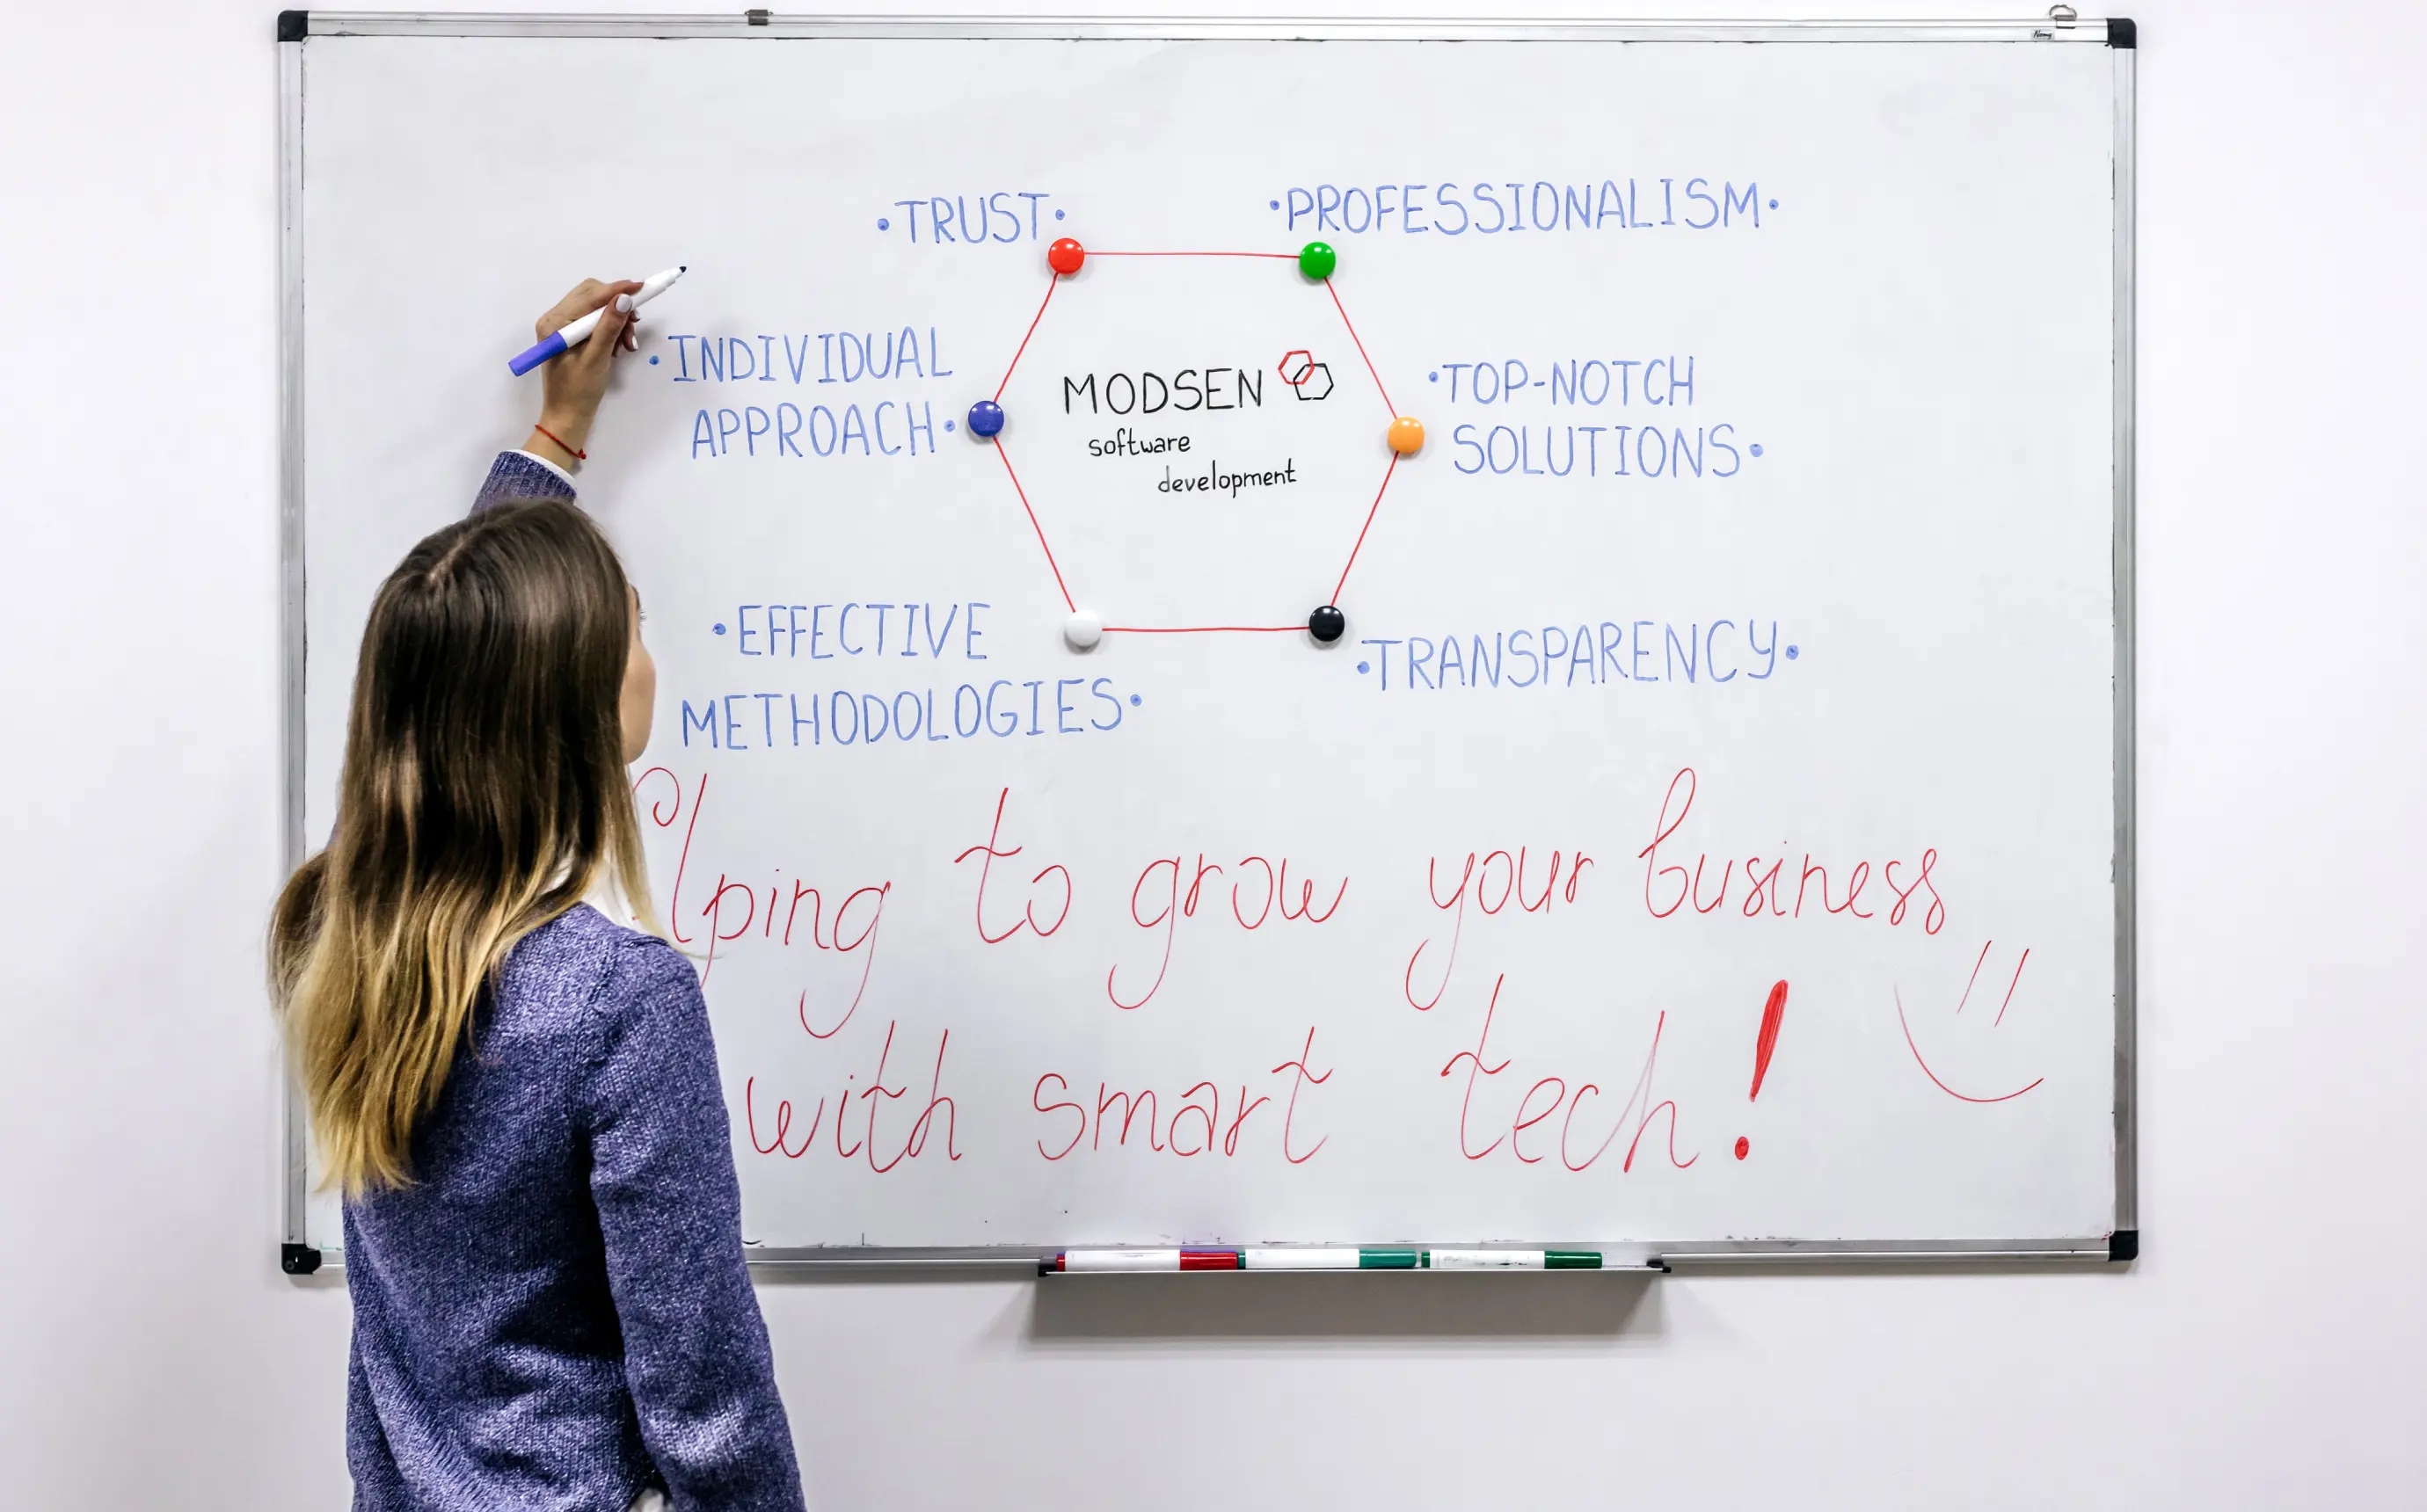 ·TRUST·
·PROFESSIONALISM·
·INDIVIDUAL
APPROACH·
MODSEN
software
development
·TOP-NOTCH
SOLUTIONS·
·EFFECTIVE
METHODOLOGIES·
·TRANSPARENCY·
lping to grow your business
with smart tech!